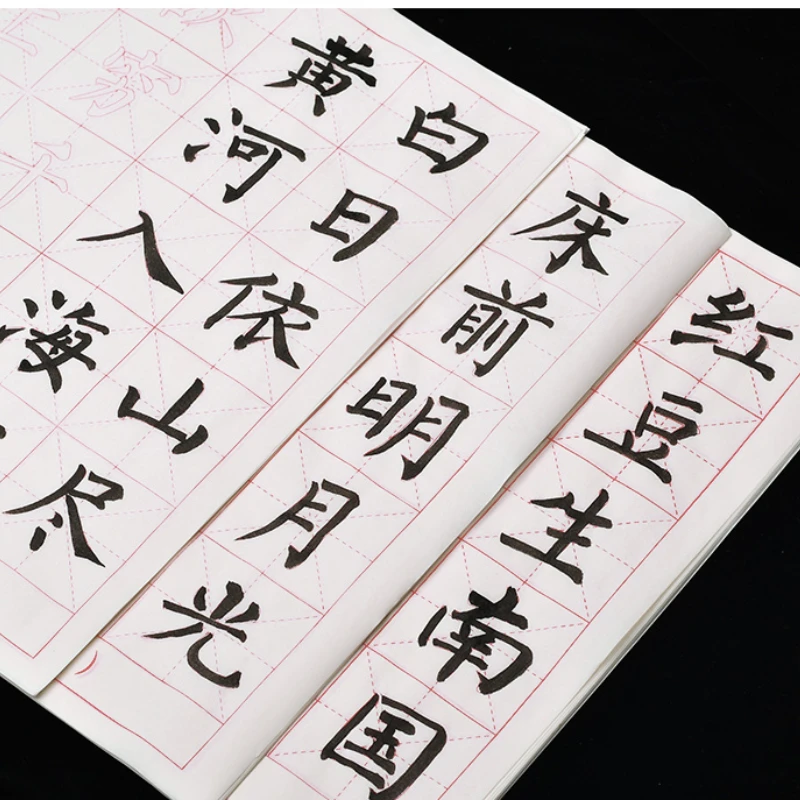 红豆生南国
床前明月光
白日依山尽
黄河入海
穷千